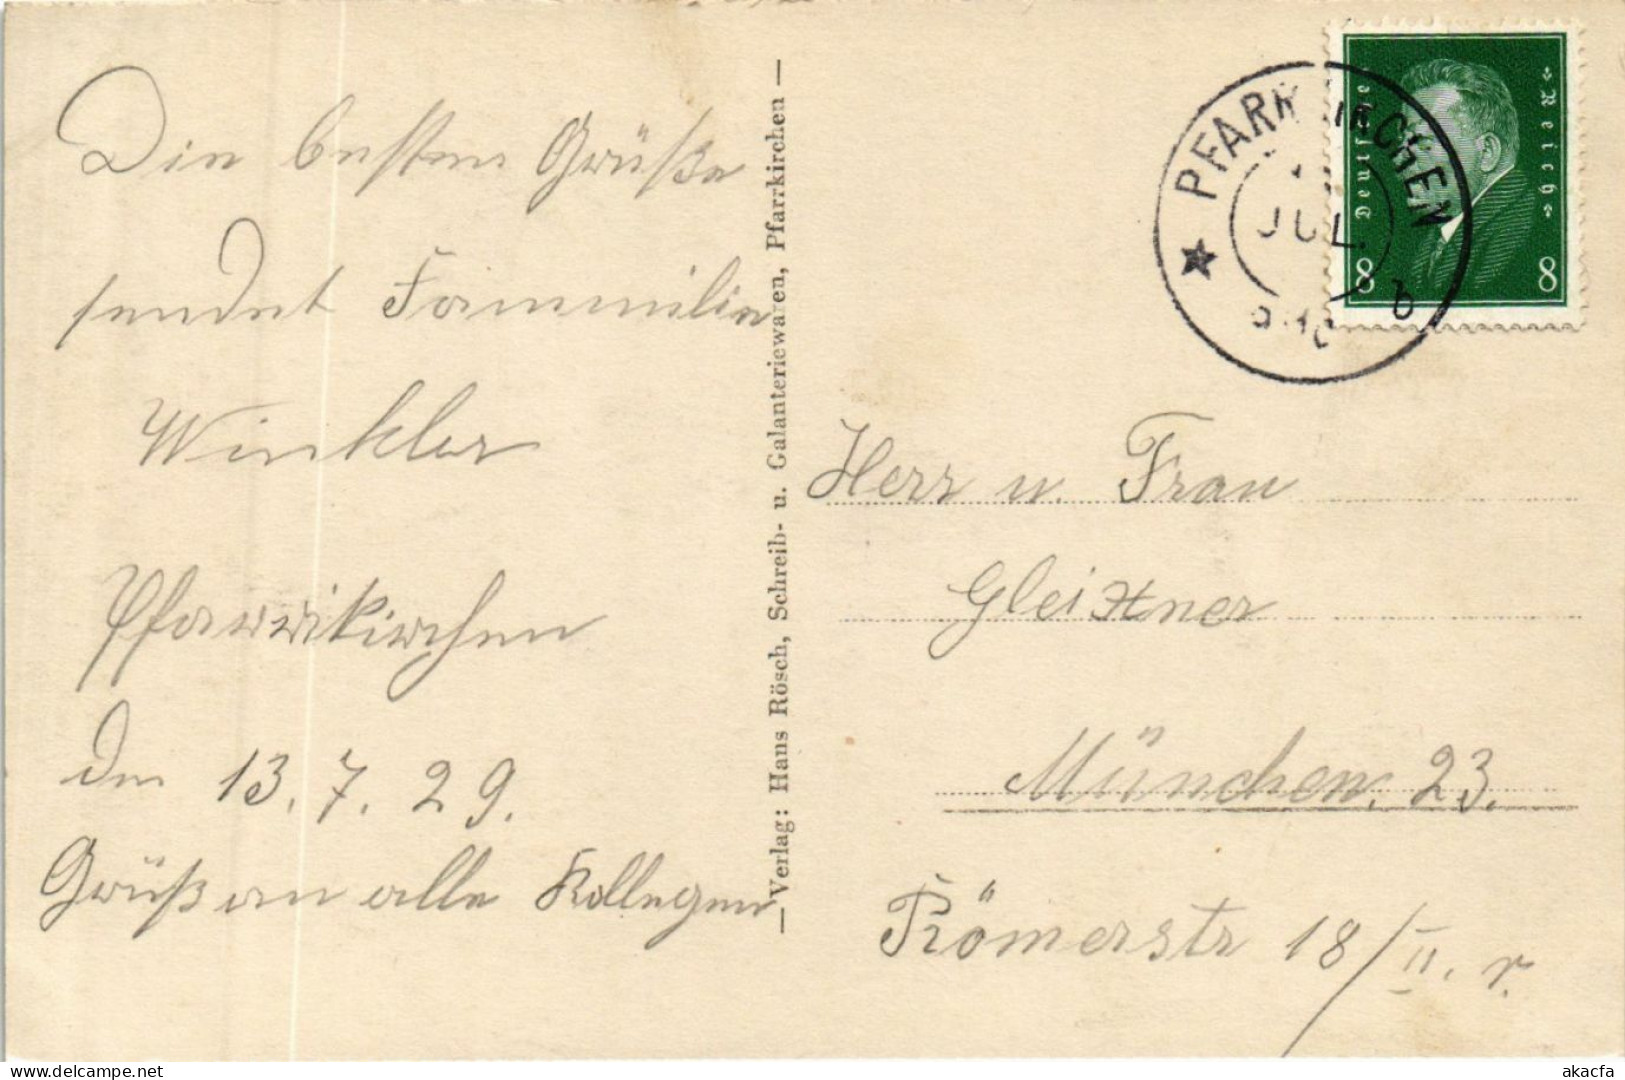 Die besten Grüße
sendet Fammilie
Winkler
Pfarrkirchen
den 13. 7. 29.
Grüße an alle Kollegen
— Verlag: Hans Rösch, Schreib- u. Galanteriewaren, Pfarrkirchen —
PFARRKIRCHEN
JUL.
b
Deutsches
Reich
8 8
Herr u. Frau
Gleixner
München. 23.
Römerstr 18/II. r.
akacfa